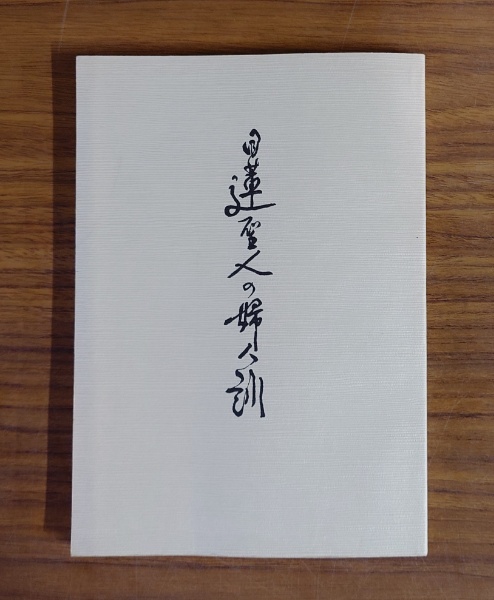 日蓮聖人の婦人訓